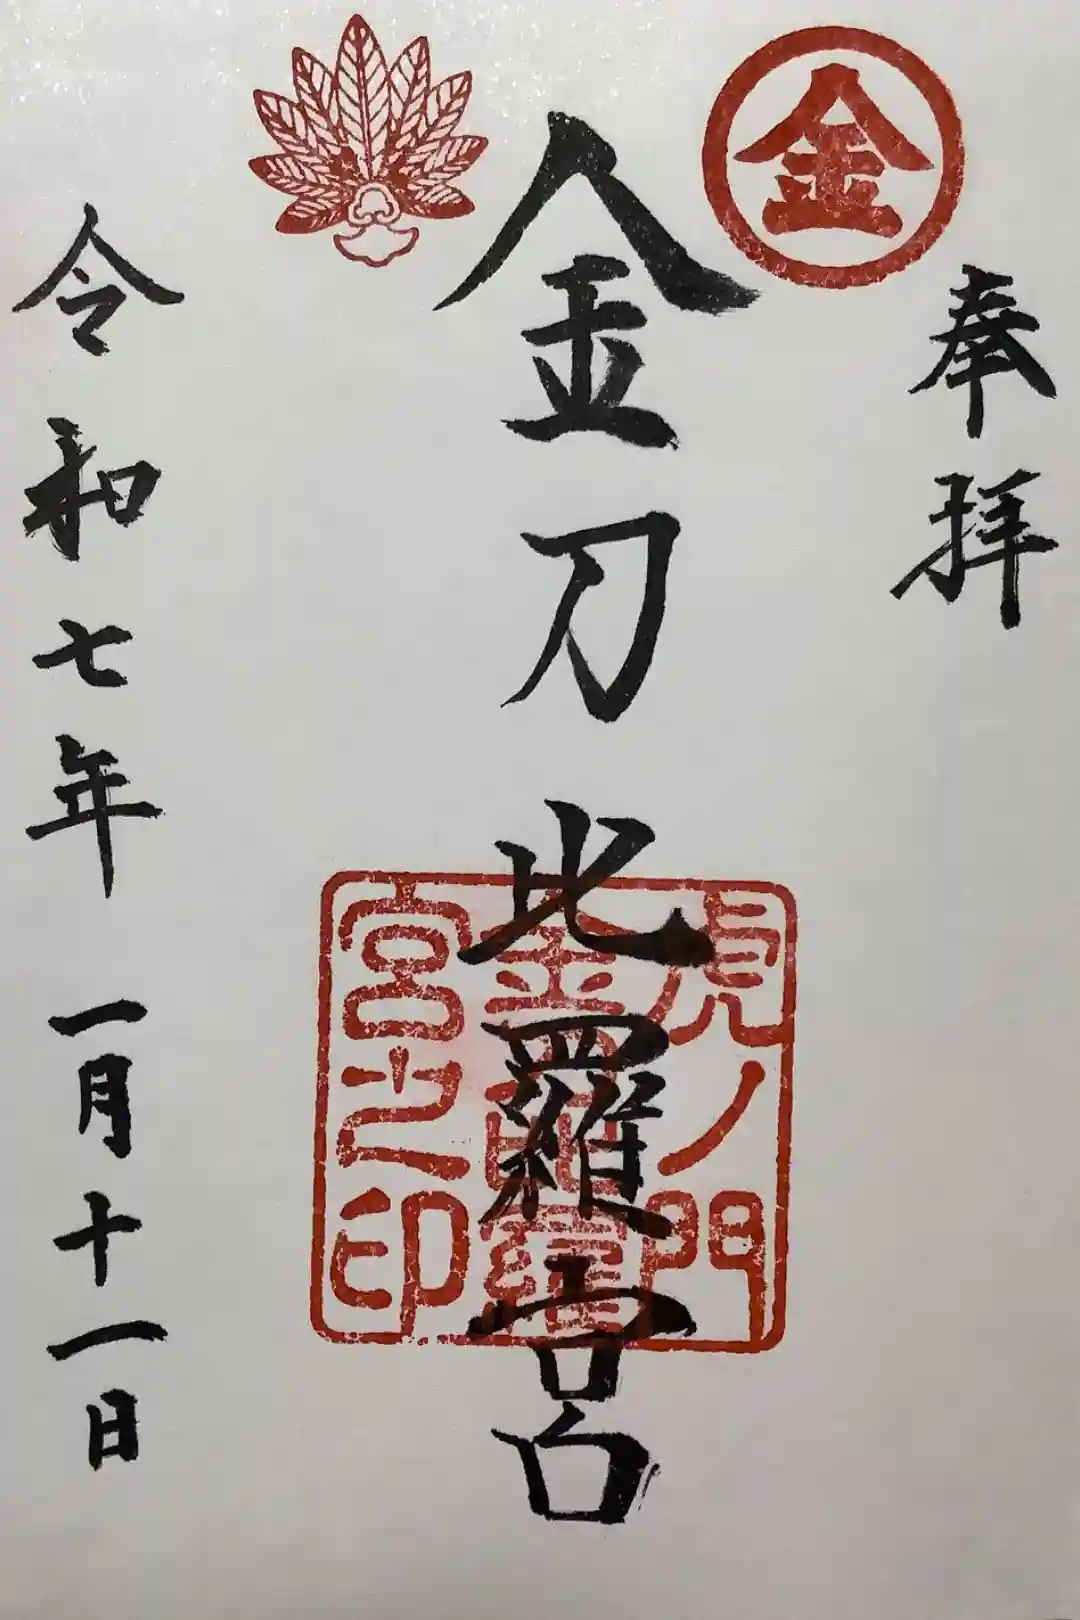 奉拝
金
金刀比羅宮
虎ノ門
金刀比羅
宮之印
令和七年一月十一日